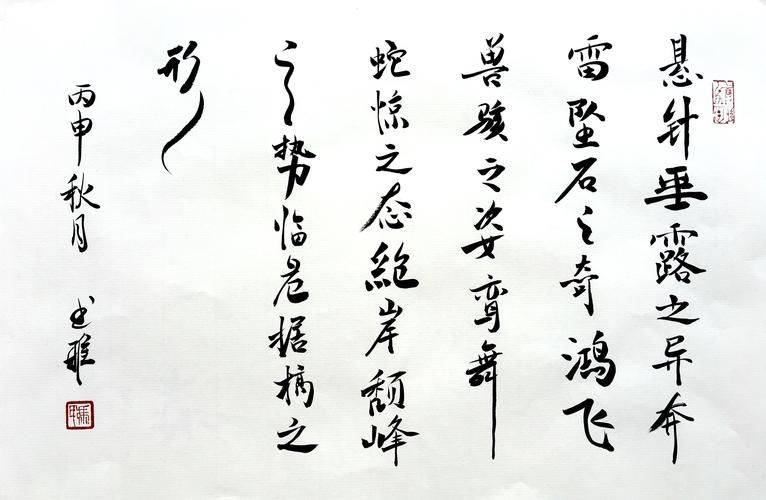 悬针垂露之异奔
雷坠石之奇鸿飞
兽骇之姿鸾舞
蛇惊之态绝岸颓峰
之势临危据槁之
形
丙申秋月 志雅